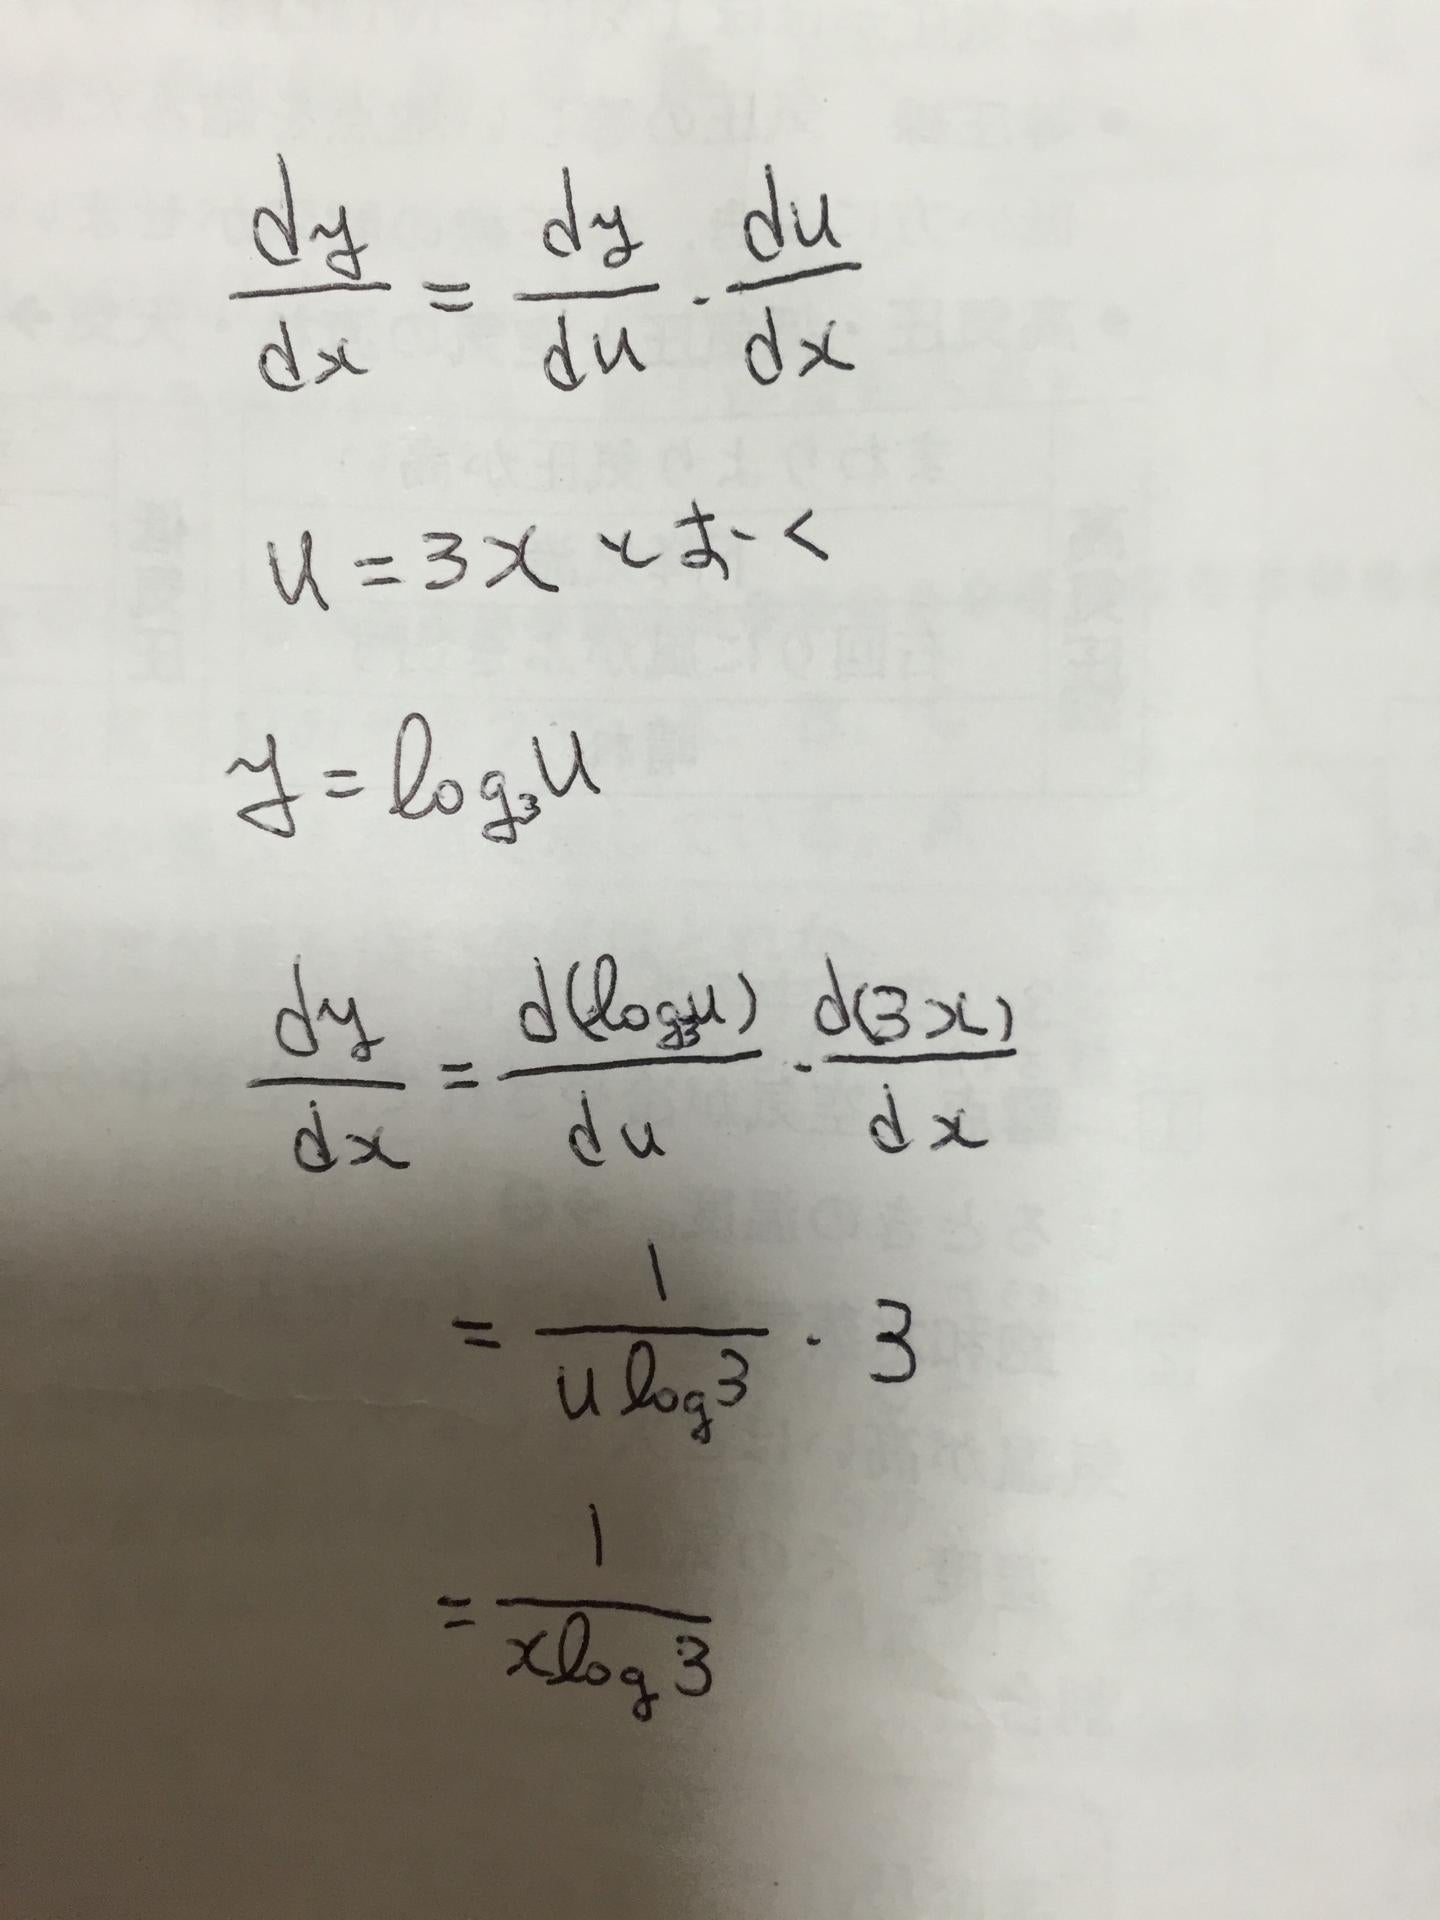 dy/dx = dy/du · du/dx
u = 3x とおく
y = log₃u
dy/dx = d(log₃u)/du · d(3x)/dx
= 1/(u log 3) · 3
= 1/(x log 3)